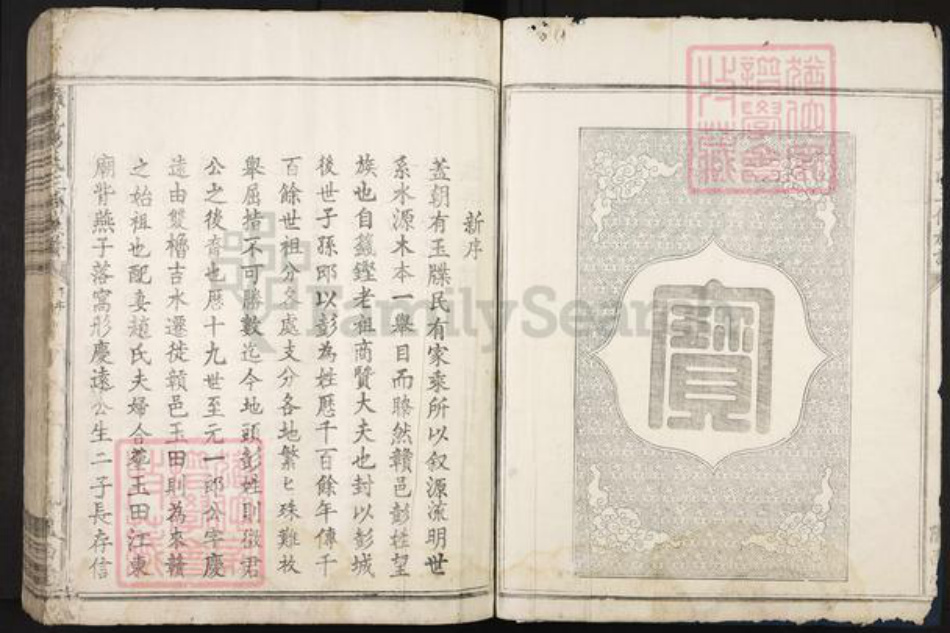 寶
新序
蓋朝有玉牒民有家乘所以叙源流明世
系水源木本一舉目而瞭然贛邑彭姓望
族也自籛鏗老祖商賢大夫也封以彭城
後世子孫即以彭為姓歷千百餘年傳千
百餘世祖分各處支分各地繁匕殊難枚
舉屈指不可勝數迄今地頭彭姓則徵君
公之後裔也歷十九世至元一郎公字慶
遠由雙櫓吉水遷徙贛邑玉田則為來贛
之始祖也配妻趙氏夫婦合墓玉田江東
廟背燕子落窩形慶遠公生二子長存信
FamilySearch